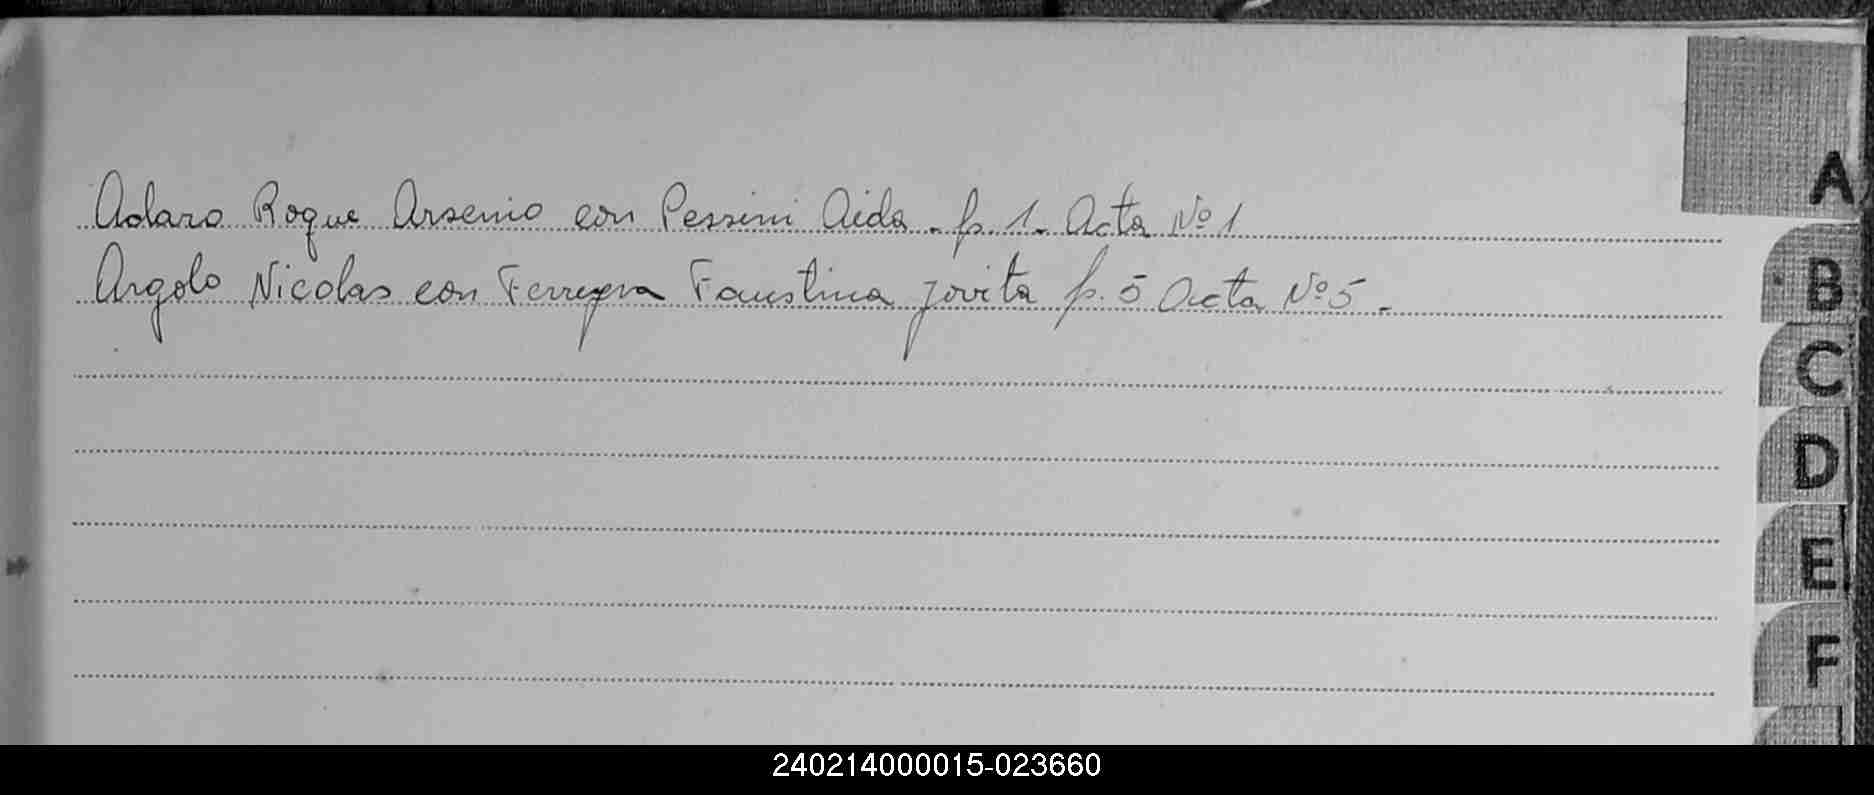 Adaro Roque Arsenio con Pessini Aida. f. 1. Acta Nº 1
Argolo Nicolas con Ferreyra Faustina Jovita f. 5 Acta Nº 5.
A
B
C
D
E
F
240214000015-023660